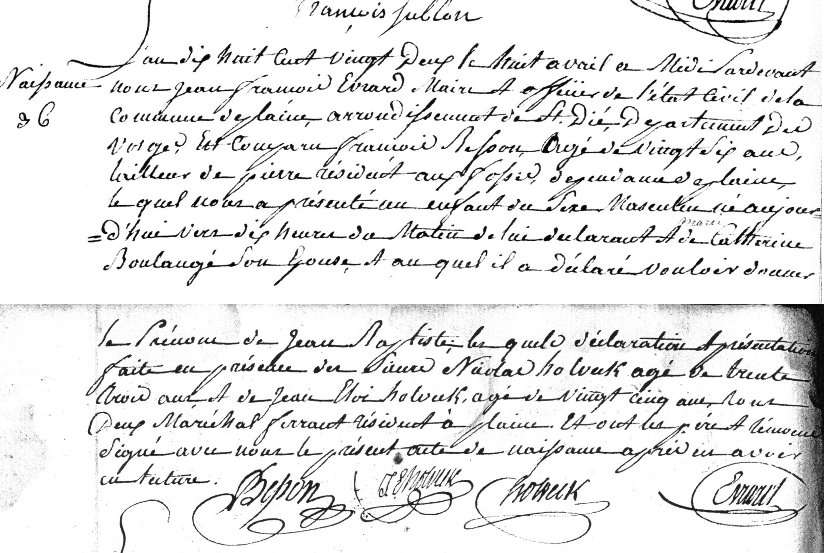 françois jullon
Evrard
Naissance
36
L'an dix huit cent vingt deux le huit avril a Midi Pardevant
nous jean françois Evrard Maire et officier de l'état civil de la
Commune de plaine, arrondissement de St. Dié, Département des
Vosges, Est Comparu françois Bepon, agé de vingt six ans,
tailleur de pierre résident aux fosses, dependance de plaine,
le quel nous a présenté un enfant du Sexe Masculin né aujour=
=d'hui vers dix heures du Matin de lui declarant et de Catherine
Boulangé Son Epouse, et au quel il a déclaré vouloir donner
le Prénom de Jean Baptiste, les quels déclaration et présentation
faite en présence des Sieurs Nicolas holveck agé de trente
trois ans et de Jean Eloi holveck, agé de vingt cinq ans, tous
Deux Maréchal ferrant résident à plaine. Et ont les père et témoins
Signé avec nous le présent acte de naissance après en avoir
eu lecture.
Bepon JEholveck holveck Evrard